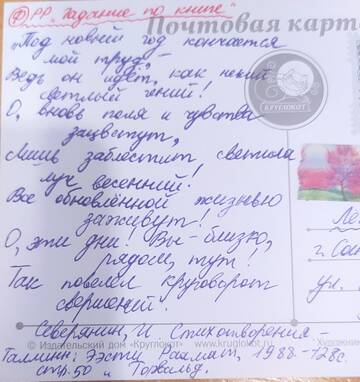 Ф) РР. "Задание по книге"
Почтовая карт
"Под новый год кончается
мой труд, -
Ведь он идёт, как некий
светлый гений!
О, вновь поля и чувства
зацветут,
Лишь заблестит светила
луч весенний!
Все обновлённой жизнью
заживут!
О, эти дни! Вы - близко,
рядом, тут!
Так повелел круговорот
свершений.
КРУГЛОКОТ
г. Со
ул.
Северянин, И. Стихотворения -
© Издательский дом «Круглокот» www.kruglokot.ru
Художник
Таллинн: Ээсти Раамат, 1988 - 128с.
стр. 50 "Торвальд.